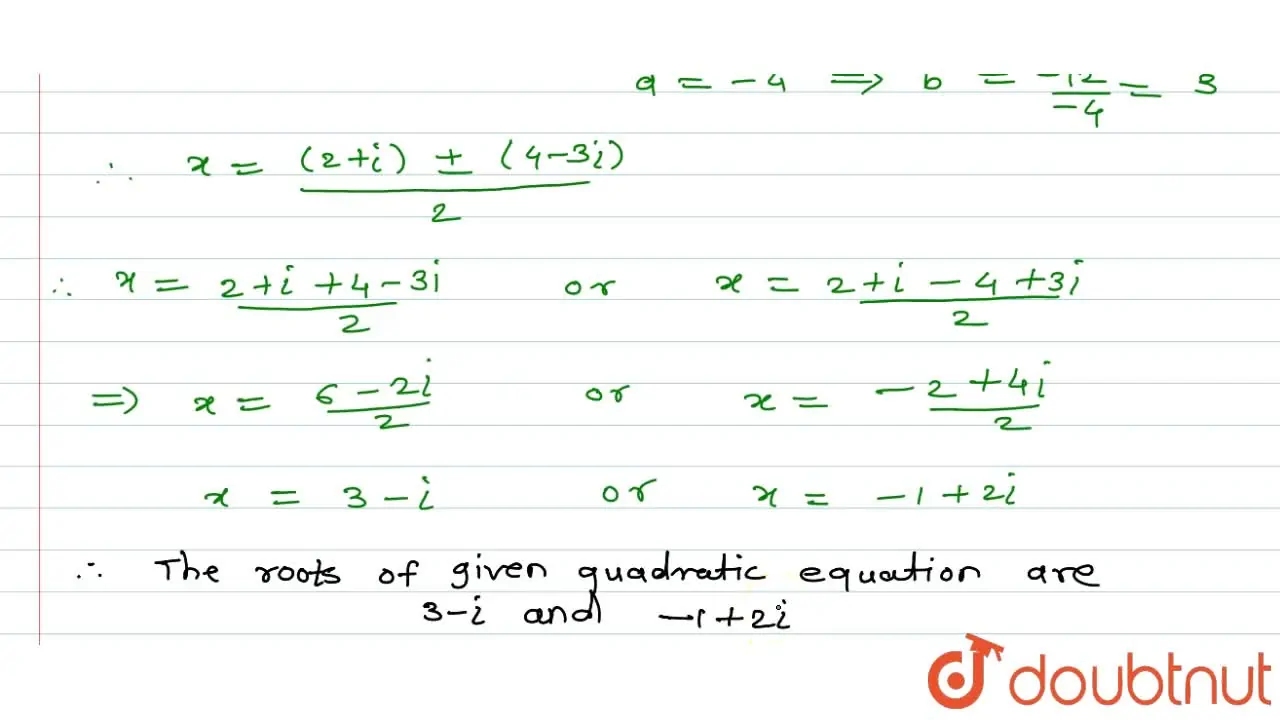 a = -4 ⇒ b = -12/-4 = 3
∴ x = (2+i) ± (4-3i)/2
∴ x = 2+i+4-3i/2 or x = 2+i-4+3i/2
⇒ x = 6-2i/2 or x = -2+4i/2
x = 3-i or x = -1+2i
∴ The roots of given quadratic equation are
3-i and -1+2i
doubtnut